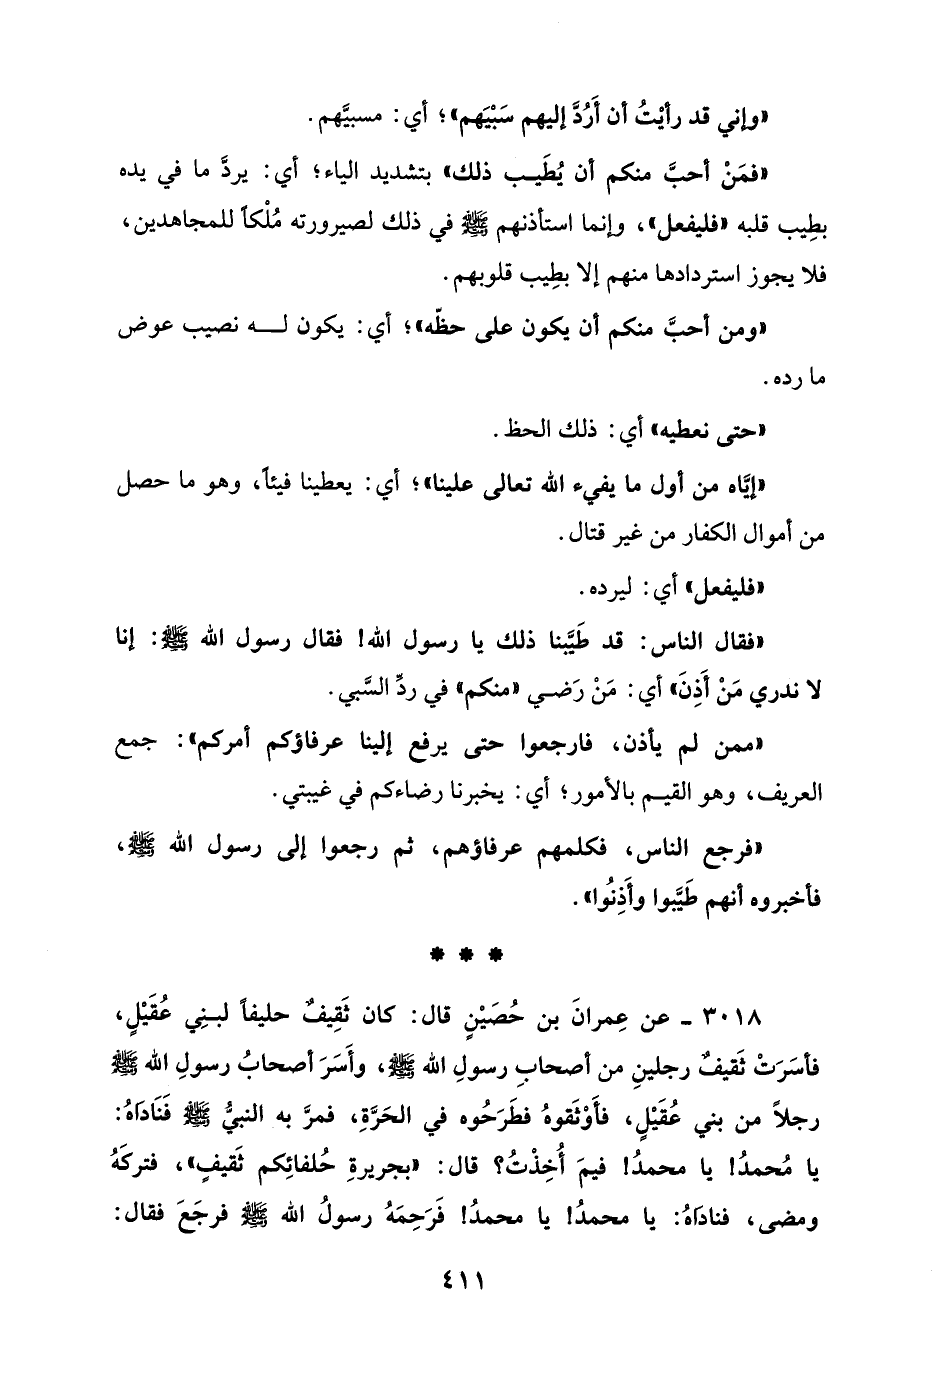 «وإني قد رأيْتُ أن أَرُدَّ إليهم سَبْيَهم»؛ أي: مسبيَّهم.
«فمَنْ أحبَّ منكم أن يُطَيب ذلك» بتشديد الياء؛ أي: يردَّ ما في يده
بطِيب قلبه «فليفعل»، وإنما استأذنهم ﷺ في ذلك لصيرورته مُلْكاً للمجاهدين،
فلا يجوز استردادها منهم إلا بطِيب قلوبهم.
«ومن أحبَّ منكم أن يكون على حظّه»؛ أي: يكون لـه نصيب عوض
ما رده.
«حتى نعطيه» أي: ذلك الحظ.
«إيَّاه من أول ما يفيء الله تعالى علينا»؛ أي: يعطينا فيئاً، وهو ما حصل
من أموال الكفار من غير قتال.
«فليفعل» أي: ليرده.
«فقال الناس: قد طَيَّبنا ذلك يا رسول الله! فقال رسول الله ﷺ: إنا
لا ندري مَنْ أَذِنَ» أي: مَنْ رَضي «منكم» في ردِّ السَّبي.
«ممن لم يأذن، فارجعوا حتى يرفع إلينا عرفاؤكم أمركم»: جمع
العريف، وهو القيم بالأمور؛ أي: يخبرنا رضاءكم في غيبتي.
«فرجع الناس، فكلمهم عرفاؤهم، ثم رجعوا إلى رسول الله ﷺ،
فأخبروه أنهم طَيَّبوا وأَذِنُوا».
* * *
٣٠١٨ - عن عِمرانَ بن حُصَيْنٍ قال: كان ثَقِيفٌ حليفاً لبني عُقَيْلٍ،
فأسَرَتْ ثَقيفٌ رجلينِ من أصحابِ رسولِ الله ﷺ، وأَسَرَ أصحابُ رسولِ الله ﷺ
رجلاً من بني عُقَيْلٍ، فأَوْثَقوهُ فطَرَحُوه في الحَرَّةِ، فمرَّ به النبيُّ ﷺ فَنَادَاهُ:
يا مُحمدُ! يا محمدُ! فيمَ أُخِذْتُ؟ قال: «بجريرةِ حُلفائِكم ثَقيفٍ»، فتركَهُ
ومضى، فنادَاهُ: يا محمدُ! يا محمدُ! فَرَحِمَهُ رسولُ الله ﷺ فرجَعَ فقال:
٤١١